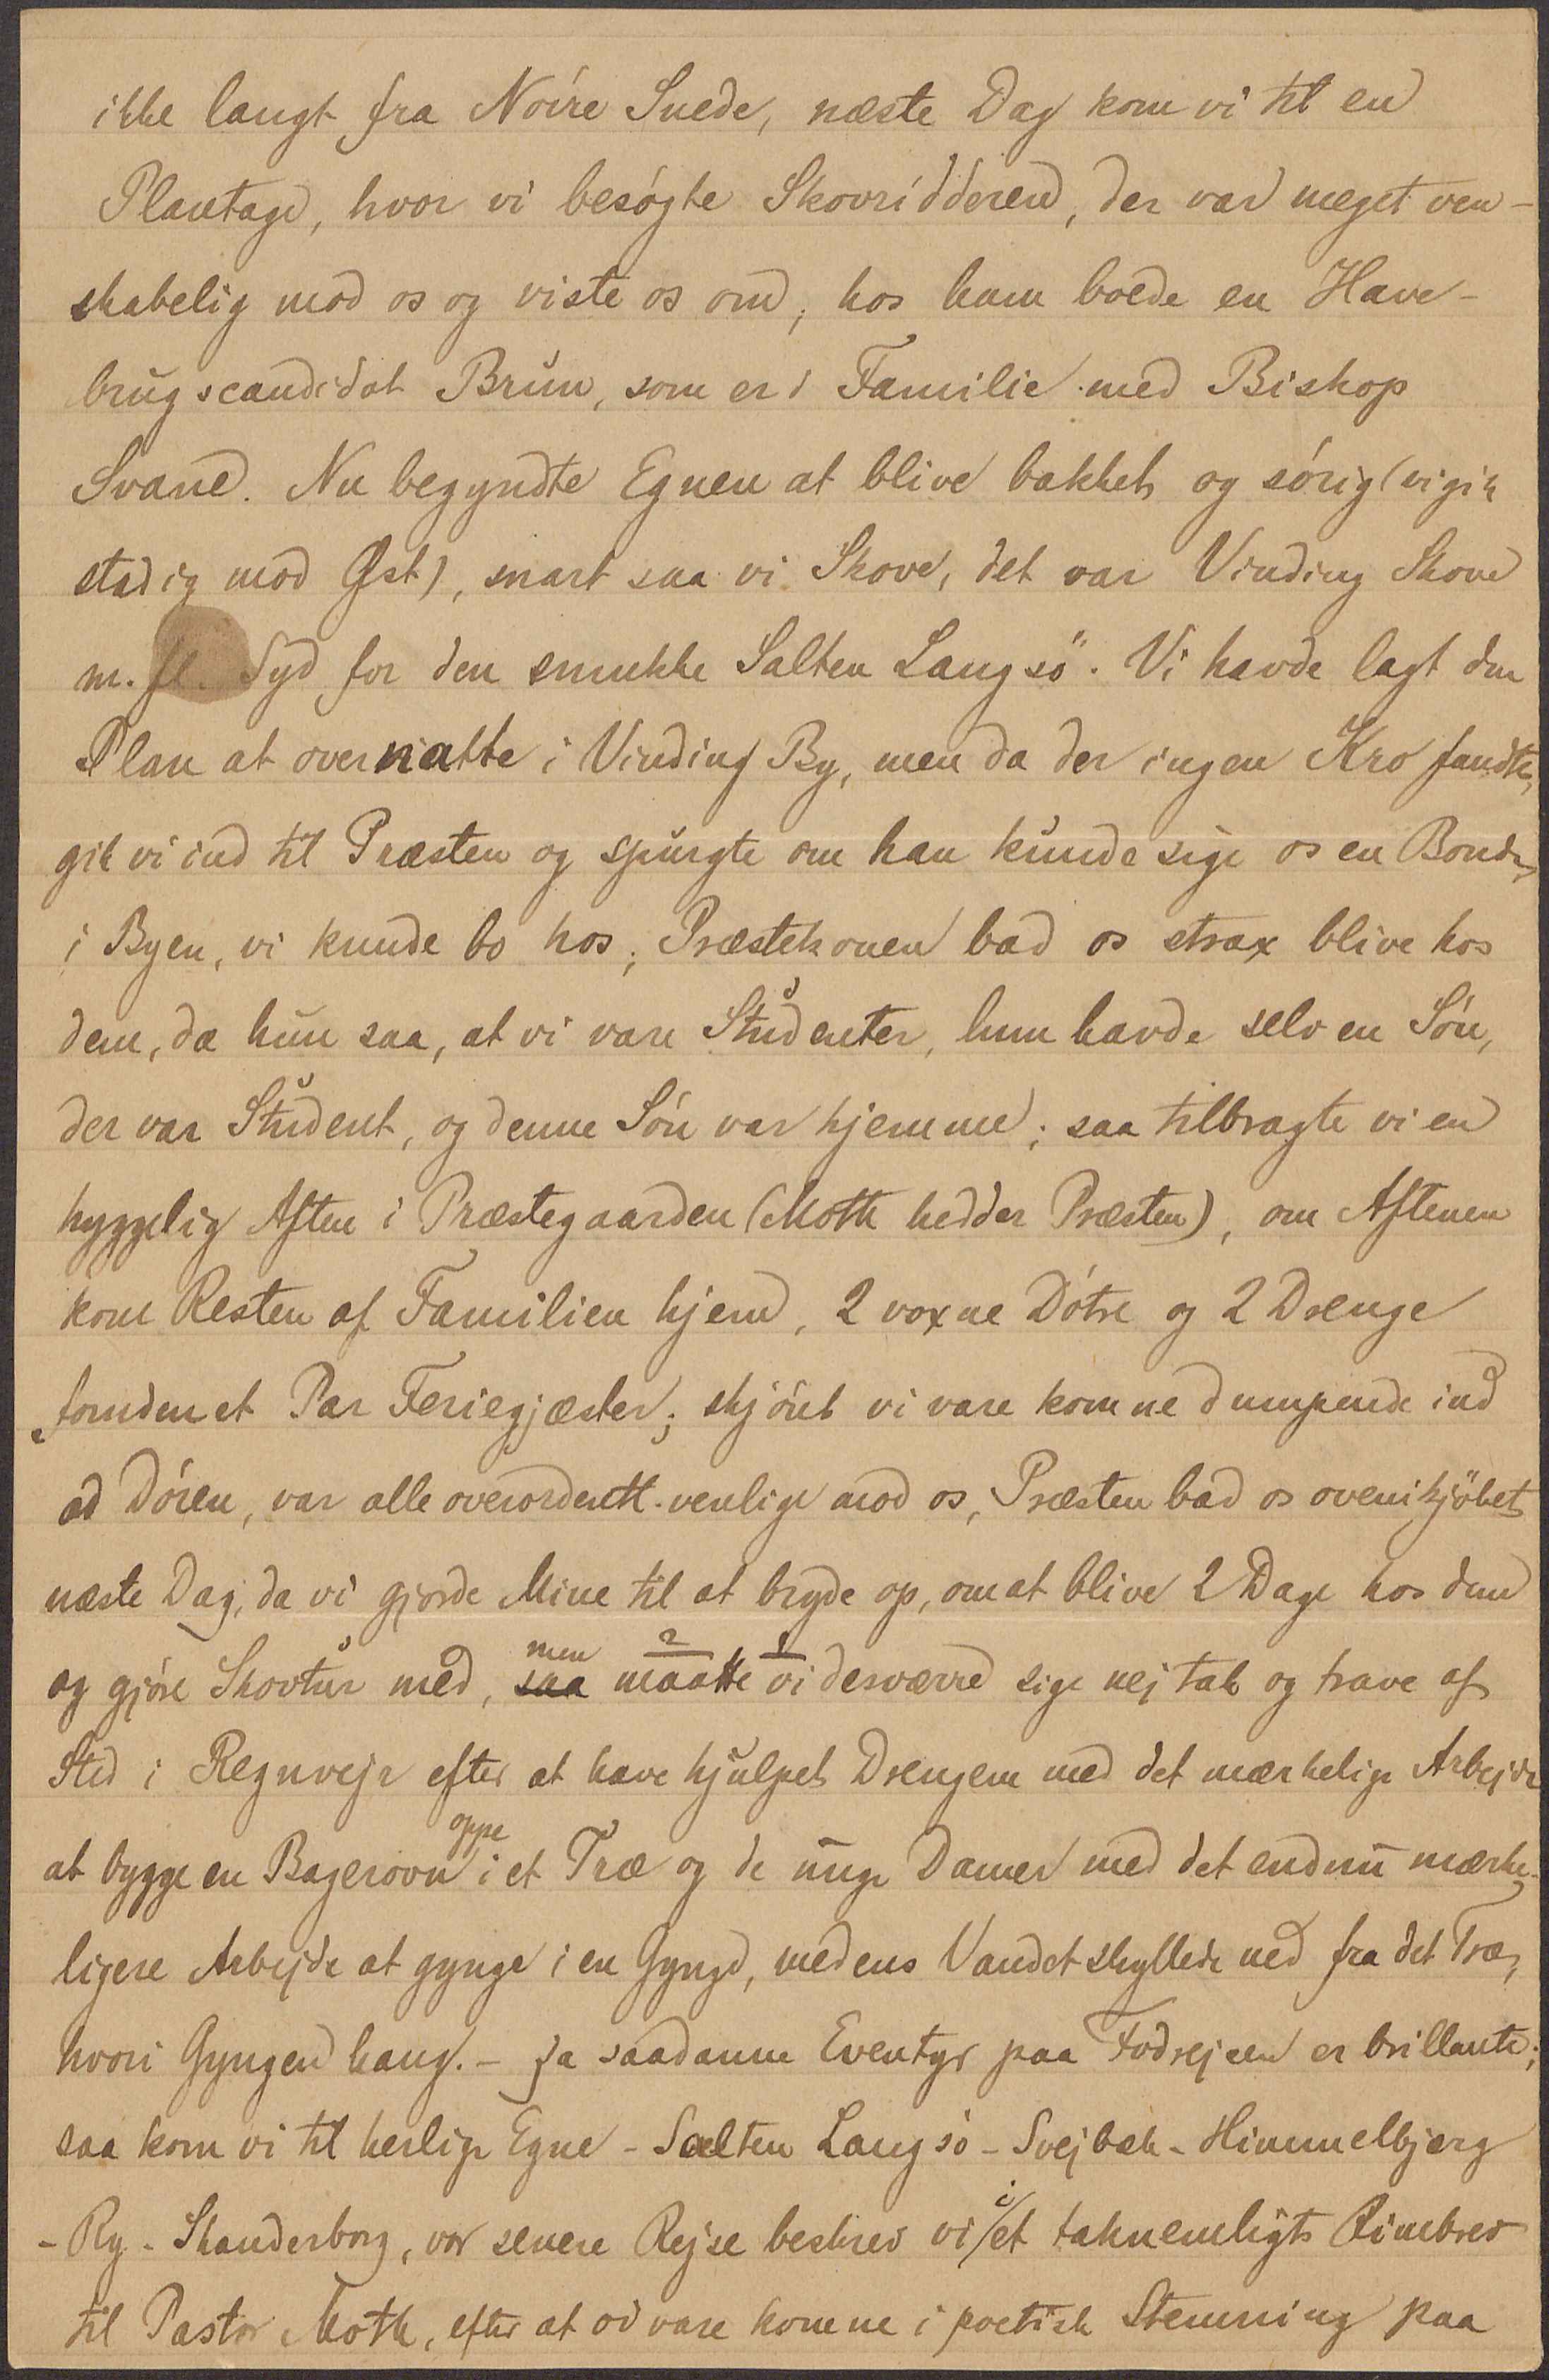 ikke langt fra Nörre Snede, næste Dag kom vi til en
Plantage, hvor vi besógte Skovridderen, der var meget ven-
skabelig mod os og viste os om, hos ham boede en Have-
brugscandidat Brun, som er i Familie med Biskop
Svane. Nu begyndte Egnen at blive bakket og sörig (vi gik
stadig mod Øst), snart saa vi Skove, det var Vinding Skove
m. fl. Syd for den smukke Salten Langsö. Vi havde lagt den
Plan at overnatte i Vinding By, men da der ingen Kro fandtes,
gik vi ind til Præsten og spurgte om han kunde sige os en Bonde,
i Byen, vi kunde bo hos; Præstekonen bad os strax blive hos
dem, da hun saa, at vi vare Studenter, hun havde selv en Sön,
der var Student, og denne Sön var hjemme; saa tilbragte vi en
hyggelig Aften i Præstegaarden (Moth hedder Præsten), om Aftenen
kom Resten af Familien hjem, 2 voxne Dötre og 2 Drenge
foruden et Par Feriegjæster; skjönt vi vare komne dumpende ind
ad Dören, var alle overordentl. venlige mod os, Præsten bad os ovenikjöbet
næste Dag, da vi gjorde Mine til at bryde op, om at blive 2 Dage hos dem
og gjöre Skovtur med, saa men maatte 2 vi 1 desværre sige nej tak og trave af
Sted i Regnvejr efter at have hjulpet Drengene med det mærkelige Arbejde
at bygge en Bagerovn oppe i et Træ og de unge Damer med det endnu mærke-
ligere Arbejde at gynge i en Gynge, medens Vandet skyllede ned fra det Træ,
hvori Gyngen hang. - Ja saadanne Eventyr paa Fodrejsen er brillante;
saa kom vi til herlige Egne - Salten Langsö - Svejbæk - Himmelbjerg
- Ry - Skanderborg, vor senere Rejse beskrev vi i et taknemligt Rimbrev
til Pastor Moth, efter at vi vare komne i poetisk Stemning paa